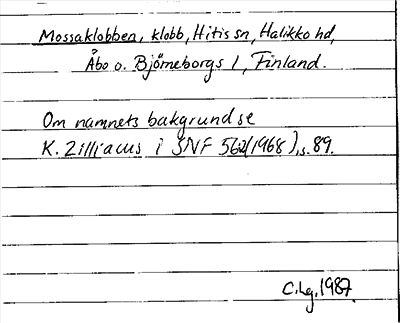 Mossaklobben, klobb, Hitis sn, Halikko hd,
Åbo o. Björneborgs l, Finland.
Om namnets bakgrund se
K. Zilliacus i SNF 56 (1968), s. 89.
C.Lg. 1987.